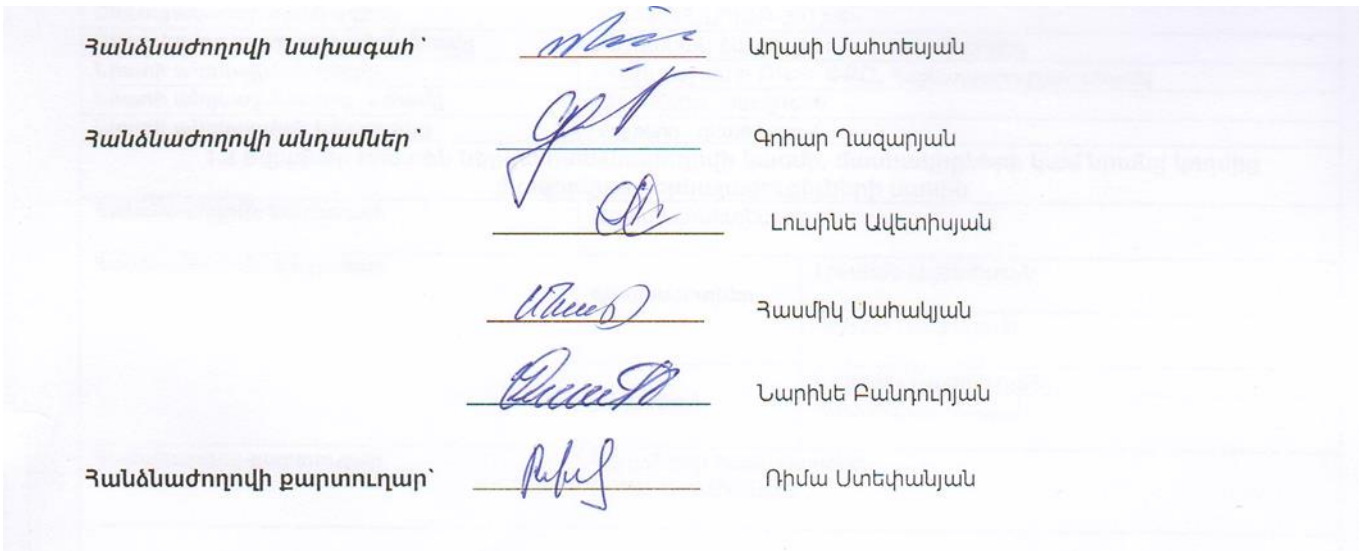 Հանձնաժողովի նախագահ՝ Աղասի Մահտեսյան
Հանձնաժողովի անդամներ՝ Գոհար Ղազարյան
Լուսինե Ավետիսյան
Հասմիկ Սահակյան
Նարինե Բանդուրյան
Հանձնաժողովի քարտուղար՝ Ռիմա Ստեփանյան